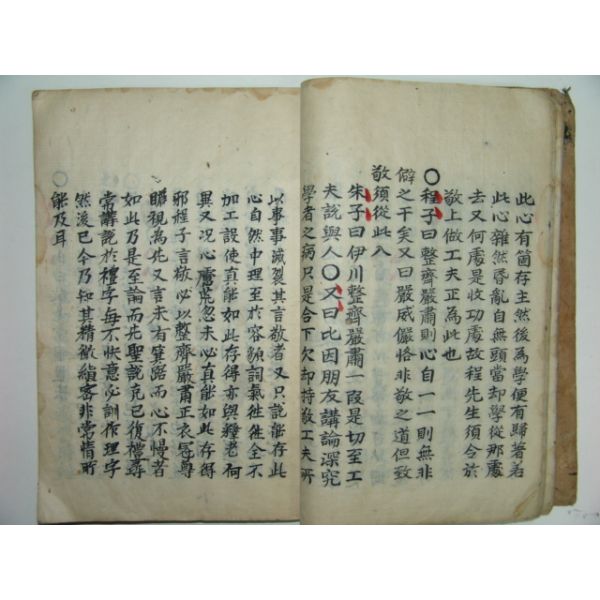 此心有箇存主然後為學便有歸著若
此心雜然昏亂自無頭當却學從那處
去又何處是收功處故程先生須令於
敬上做工夫正為此也
○程子曰整齊嚴肅則心自一一則無非
僻之干矣又曰嚴威儼恪非敬之道但致
敬須從此入
朱子曰伊川整齊嚴肅一段是切至工
夫說與人○又曰比因朋友講論深究
學者之病只是合下欠却持敬工夫所
以事事滅裂其言敬者又只說能存此
心自然中理至於容貌詞氣徃徃全不
加工設使真能如此存得亦與釋老何
異又况心慮荒忽未必真能如此存得
邪程子言敬必以整齊嚴肅正衣冠尊
瞻視為先又言未有箕踞而心不慢者
如此乃是至論而先聖說克己復禮尋
常講說於禮字每不快意必訓作理字
然後已今乃知其精微縝審非常情所
能及耳
○